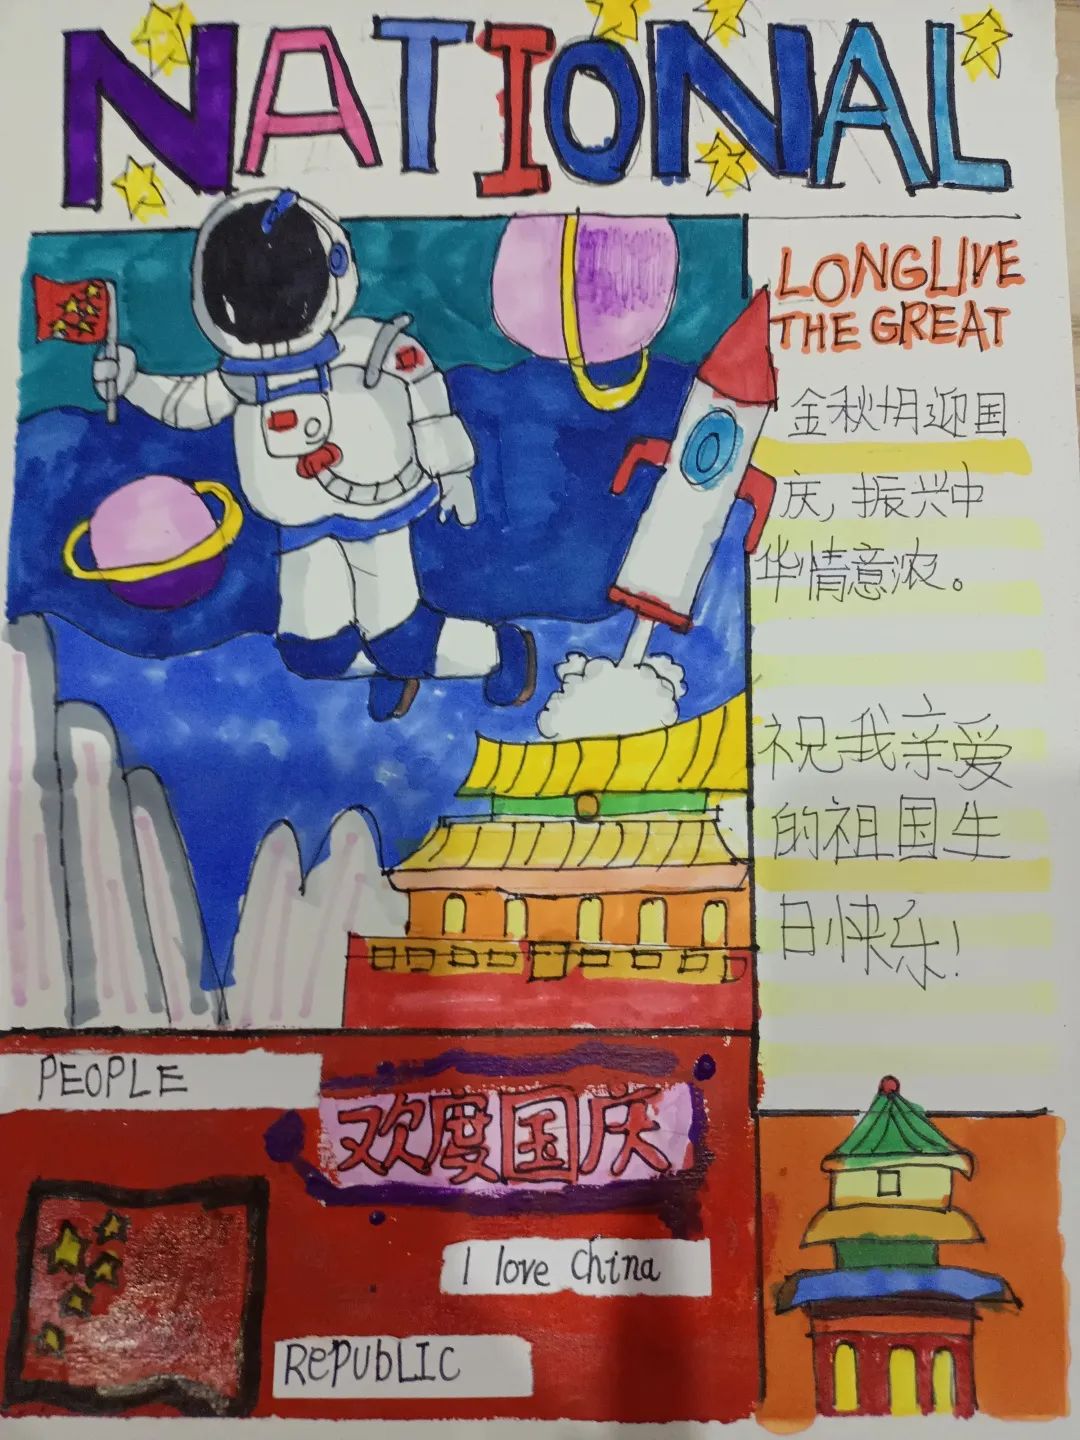 NATIONAL
LONGLIVE
THE GREAT
金秋十月迎国
庆，振兴中
华情意浓。
祝我亲爱
的祖国生
日快乐！
PEOPLE
欢度国庆
I love China
RePUbLIC